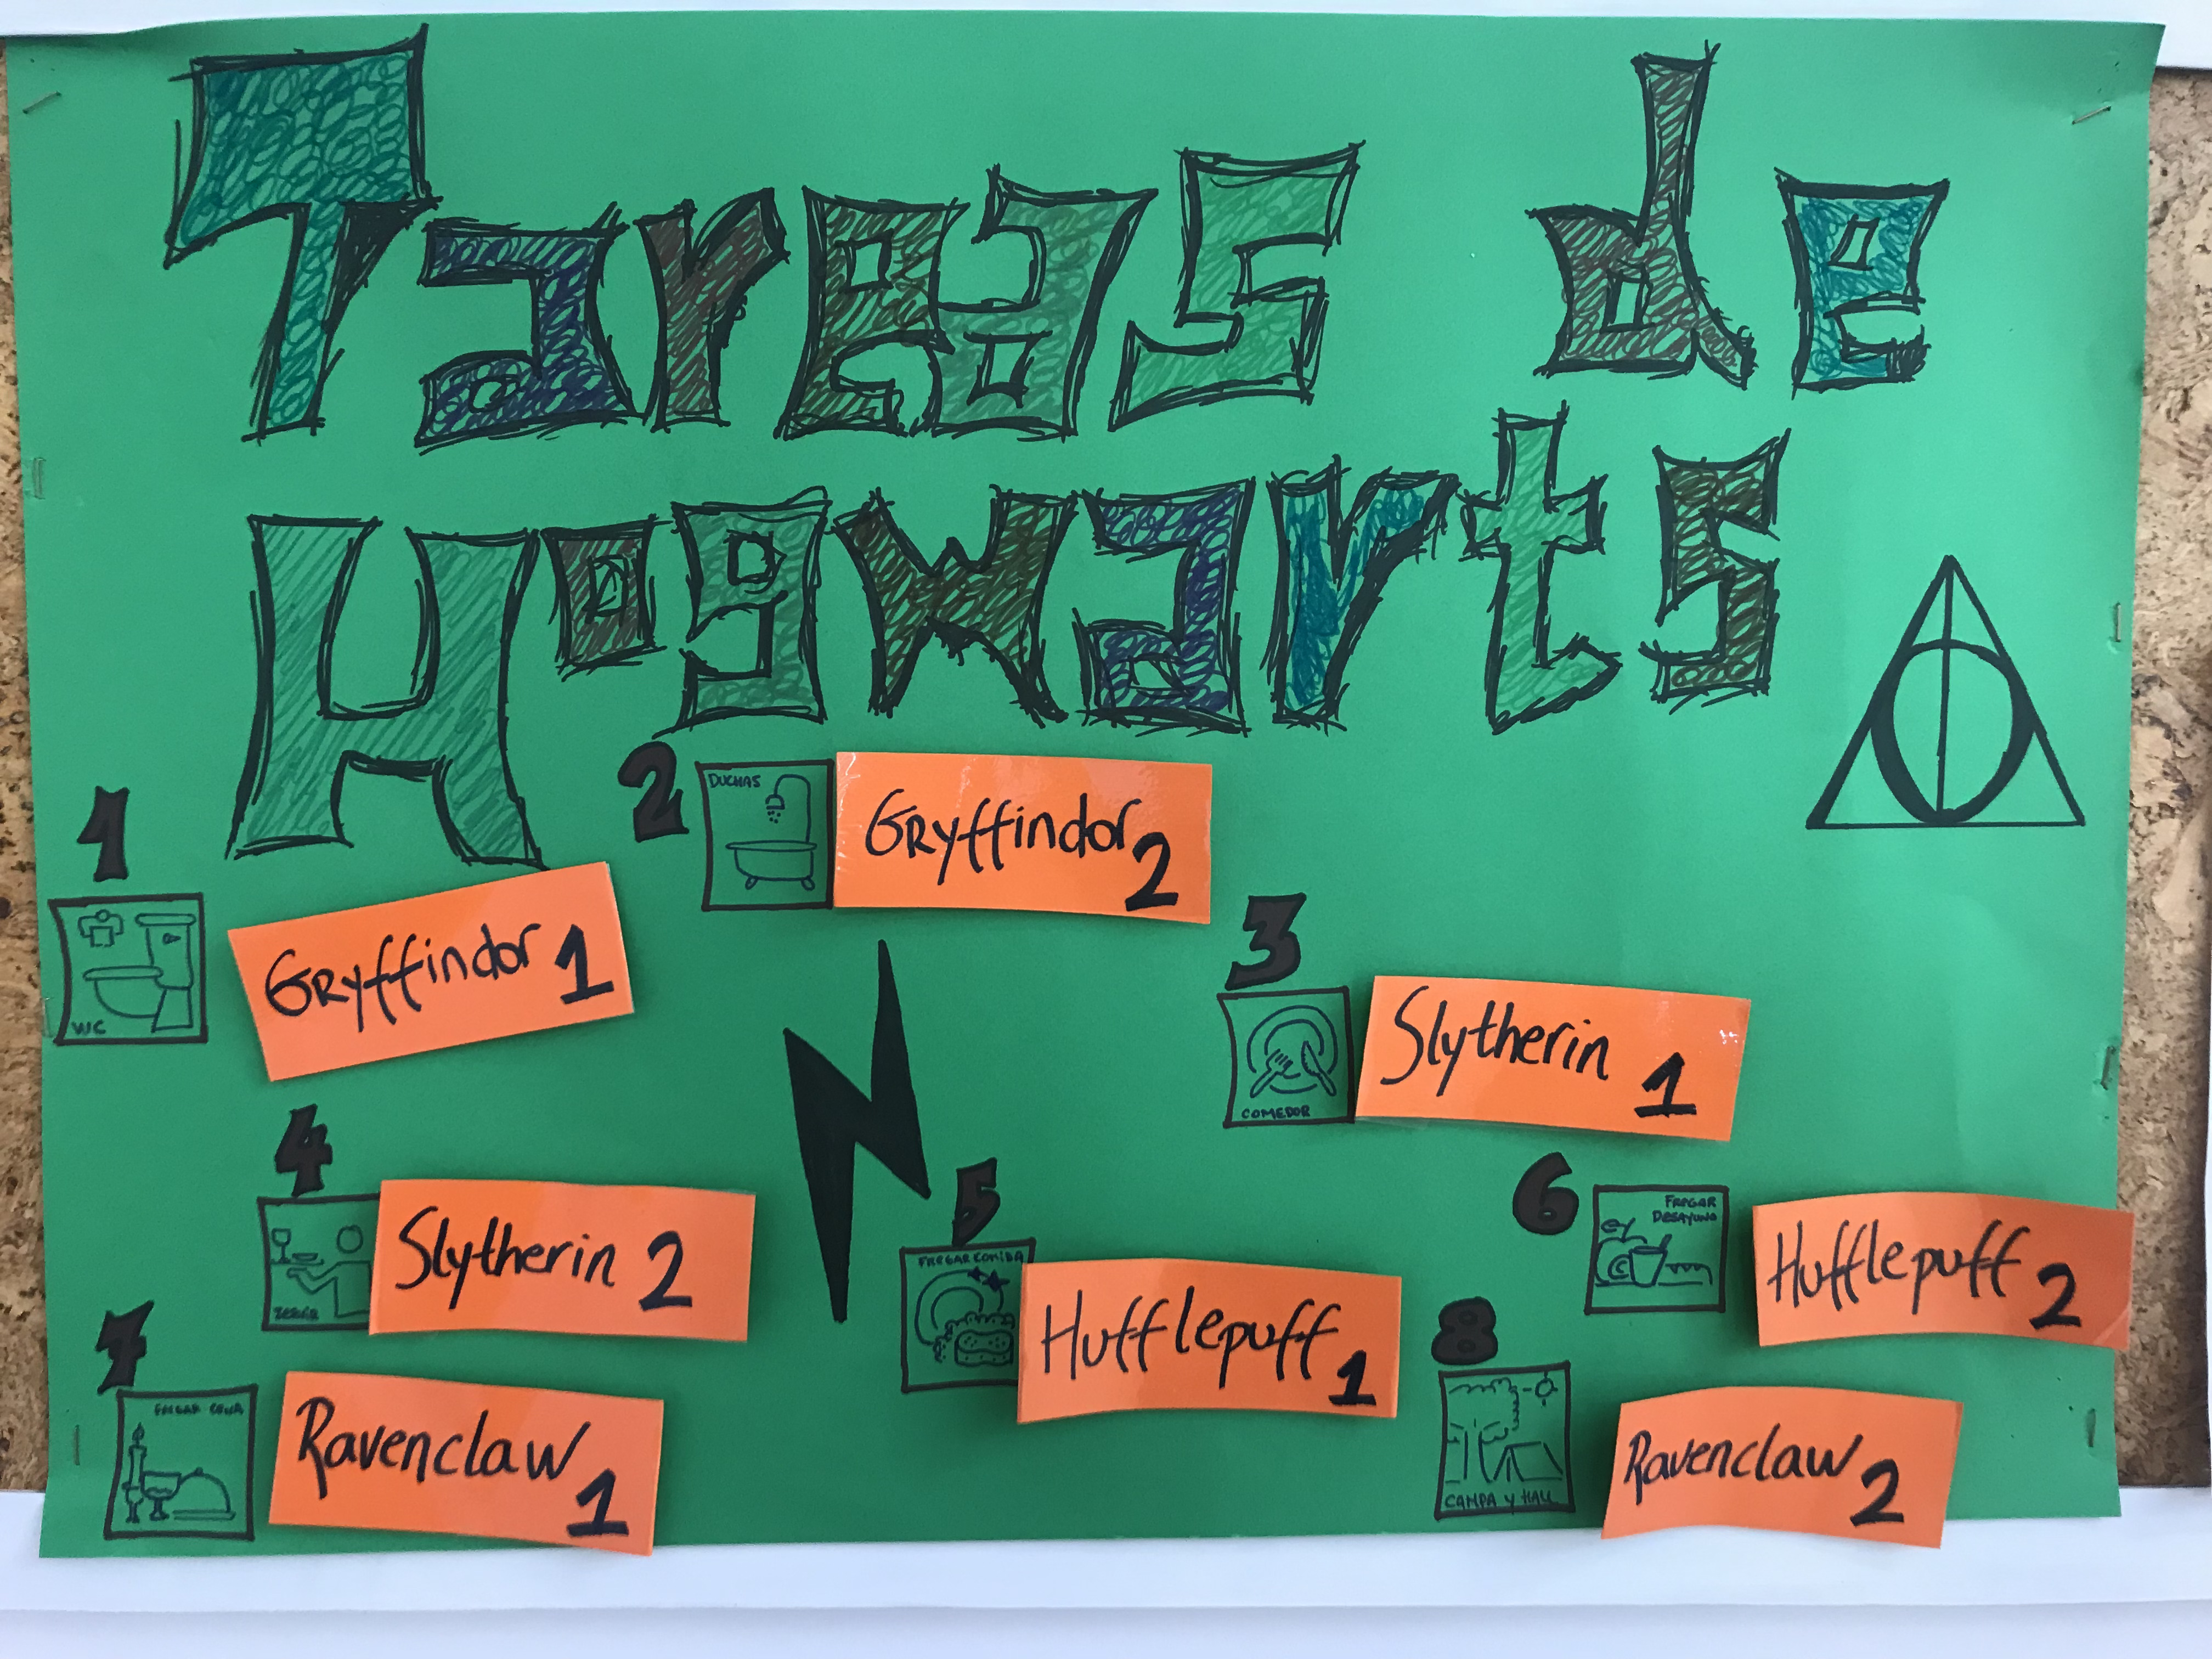 Tareas de
Hogwarts
1
WC
Gryffindor 1
2
DUCHAS
Gryffindor 2
3
COMEDOR
Slytherin 1
4
SERVIR
Slytherin 2
5
FREGAR COMIDA
Hufflepuff 1
6
FREGAR
DESAYUNO
Hufflepuff 2
7
FREGAR CENA
Ravenclaw 1
8
CAMPA Y HALL
Ravenclaw 2